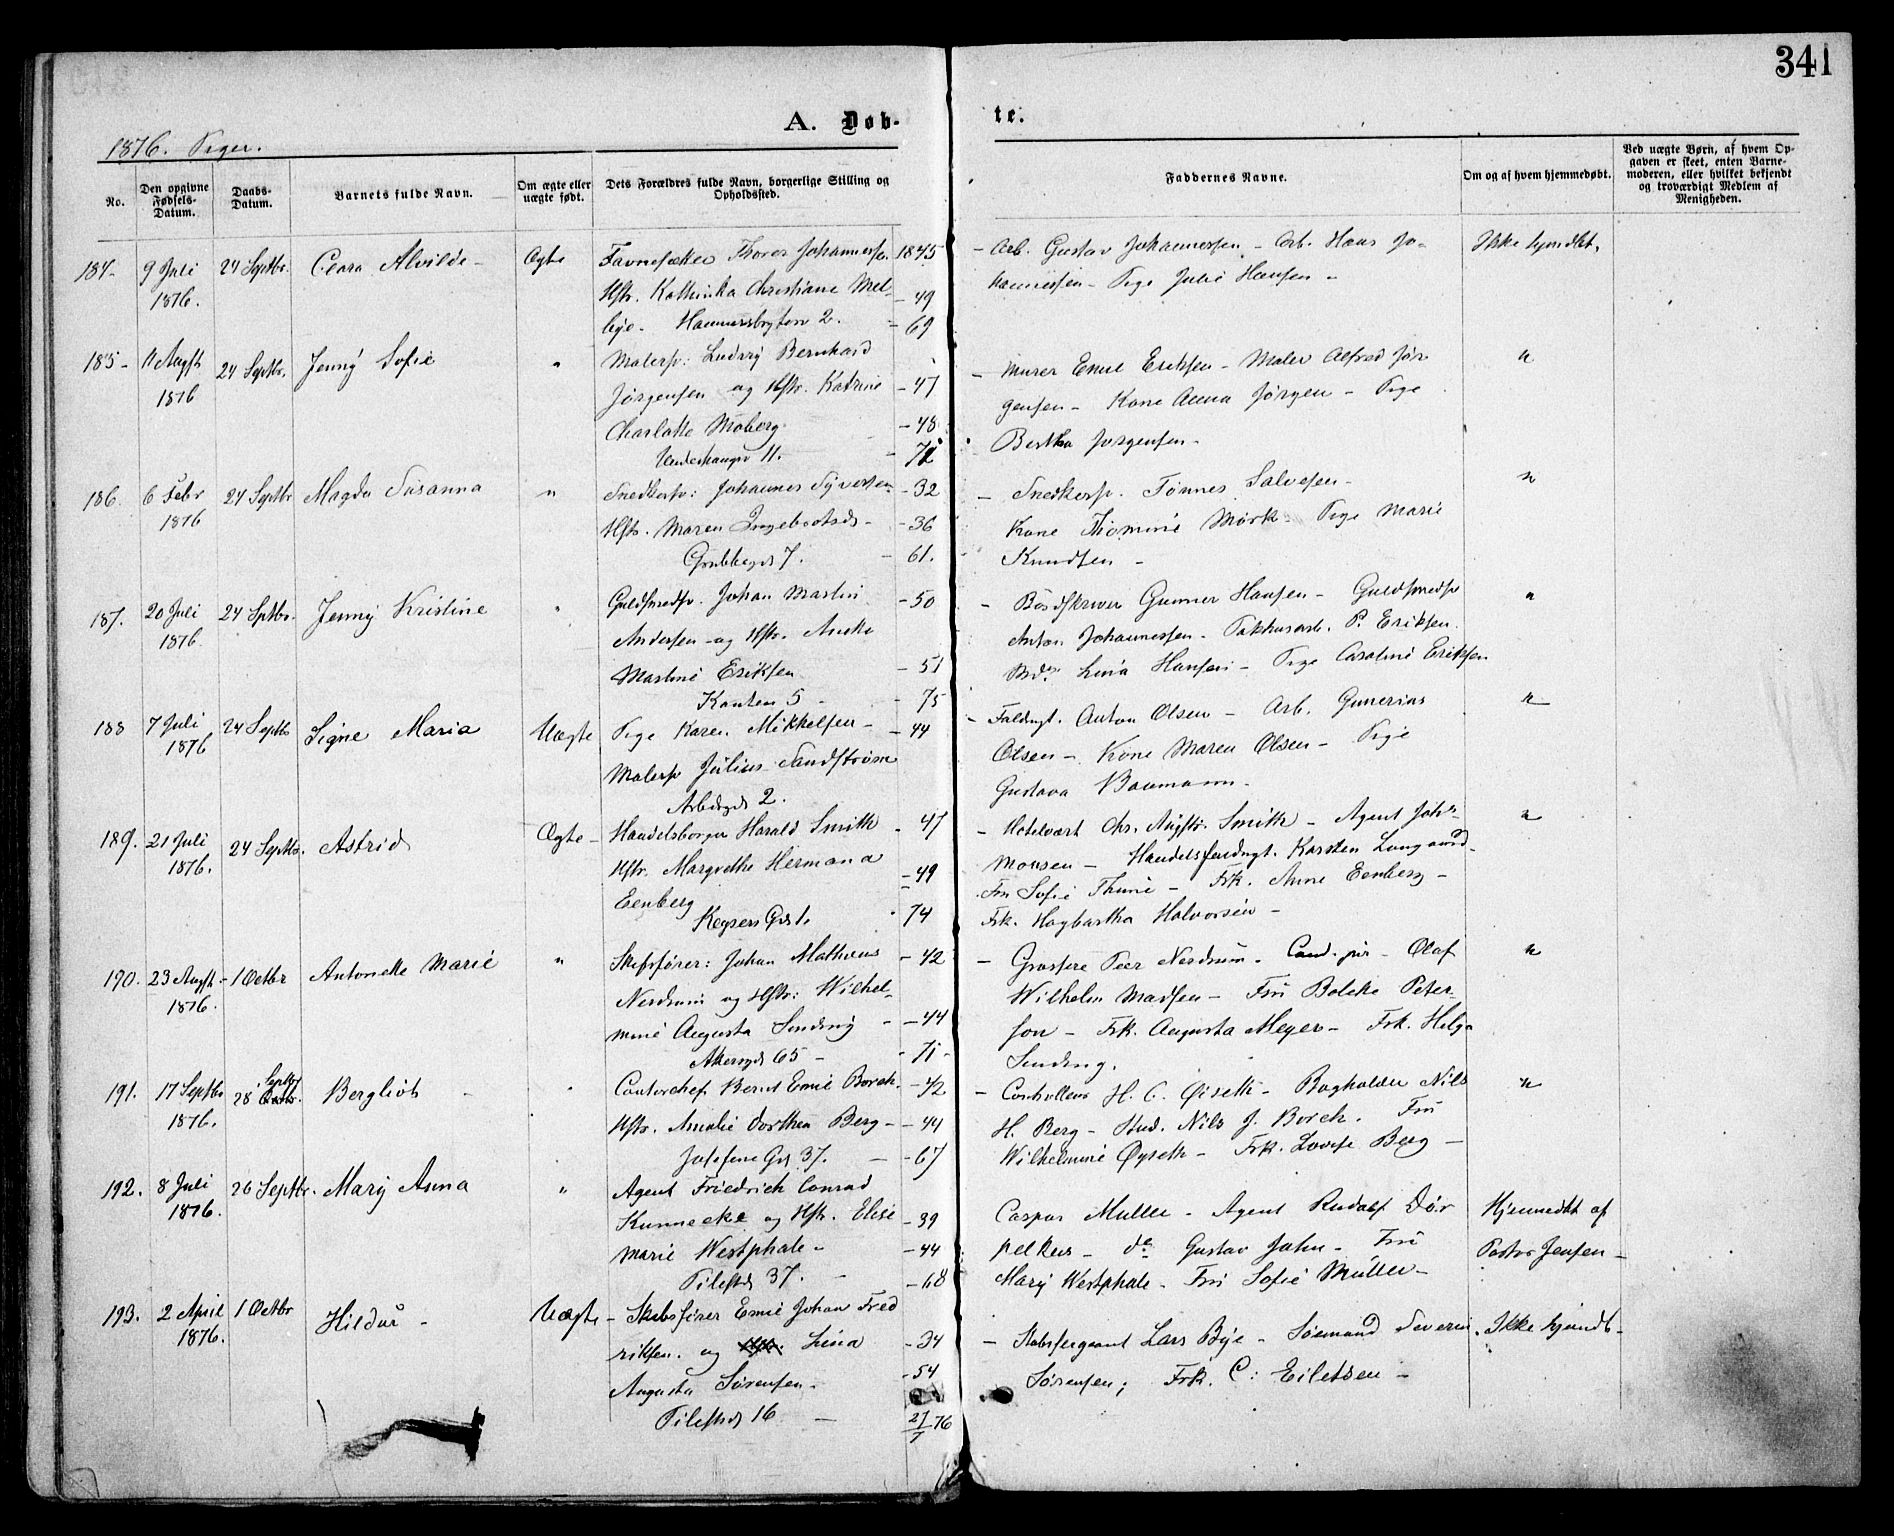 341
A. Døb-
te.
1876. Piger.
No.
Den opgivne Fødsels-Datum.
Daabs-Datum.
Barnets fulde Navn.
Om ægte eller uægte født.
Dets Forældres fulde Navn, borgerlige Stilling og Opholdssted.
Faddernes Navne.
Om og af hvem hjemmedøbt.
Ved uægte Børn, af hvem Opgaven er skeet, enten Barnemoderen, eller hvilket bekjendt og troværdigt Medlem af Menigheden.
184- 9 Juli 24 Septbr. Clara Alvilde - Ægte Favnesætter Thorer Johannesse. 1845 - Arb. Gustav Johannessen - Arb. Hans Jo- Ikke hjmdbt.
1876. Hstr. Kathinka Christiane Mel- - 49 hannessen - Pige Julie Hansen -
bye - Hammersbrgton 2. - 69
185- 11 Augst 24 Septbr. Jenny Sofie " Malersv: Ludvig Bernhard - Murer Emil Eriksen - Maler Alfred Jør "
1876 Jørgensen og Hstr. Katrine - 47 gensen - Kone Anna Jørgen - Pige
Charlotte Moberg. - 48 Bertha Jørgensen -
11.
186. 6 Febr 24 Septbr Magda Susanna " Snedkersv: Johannes Syvertsen - 32 - Snedkersv. Tønnes Salvesen - "
1876 Hstr. Maren Ingebretsd. - 36 Kone Thomine Mørk - Pige Marie
Grubbegd 7. - 61. Knudsen -
187. 20 Juli 24 Sptbr. Jenny Kristine " Guldsmedsv. Johan Martin - 50 - Gunner Hansen - Guldsmedsv "
1876. Andersen og Hstr. Anette Anton Johannessen - Pakhusarb. P. Eriksen.
Martine Eriksen - 51 Lina Hansen - Pige Caroline Eriksen
5 - - 75
188 7 Juli 24 Septbr Signe Maria Uægte Pige Karen Mikkelsen - - 44 - Fuldmgt. Anton Olsen - Arb. Gunerius "
1876 Malersv Julius Sandstrøm Olsen - Kone Maren Olsen - Pige
Arbdgd. 2. Gustava Baumann -
189. 21 Juli 24 Septbr. Astrid Ægte - Handelsborger Harald Smith - 47 - Hotelvært Chr. Augst. Smith - Agent Johs "
1876. Hstr. Margrethe Hermana - 49 Monsen - Handelsfuldmgt. Karsten Lungaard -
Eenberg Fru Sofie Thune - Frk. Anne Eenberg -
Keysers Gd - 74 Frk. Hagbartha Halvorsen -
190. 23 Augst - 1 Octbr Antonette Marie " Skibsfører: Johan Mathias - 42 - Peer Nerdrum. Cand. jur - Olaf "
1876. Nerdrum og Hstr: Wilhel- Wilhelm Madsen - Fru Bolette Peter-
mine Augusta Sinding - - 44 son - Frk. Augusta Meyer - Frk. Helga
Akersgd 65 - - 71 - Sinding.
191. 17 Septbr 28 Septbr Bergliot - Contorchef Bernt Emil Borch. - 42 - Controllør H. C. Øiseth - Bogholder Nils "
1876. Hstr. Amalie Dorthea Berg - - 44 H. Berg - Stud. Nils J. Borch. Fru
Josefine Gd 37. - - 67 Wilhelmine Øyseth - Frk. Lovise Berg -
192. 8 Juli 26 Septbr. Mary Anna " Agent Friedrich Conrad Caspar Müller - Agent Rudolf Dör Hjemmedbt af
1876. Kunnecke og Hstr. Elise - 39 pelkus - do Gustav Jahn - Fru Pastor Jensen -
Marie Westphale - - 44 Mary Westphale - Fru Sofie Müller -
Pilestd. 37. - - 68
193. 2 April 1 Octbr Hildur - Uægte - Skibsfører Emil Johan Fred - Stabssergeant Lars Bye - Sømand Severin. Ikke hjmdb -
1876. riksen. og Lina - 34 Sørensen; Frk. C: Eiletsen -
Augusta Sørensen - - 54
Pilestd. 16 - 27/7 76